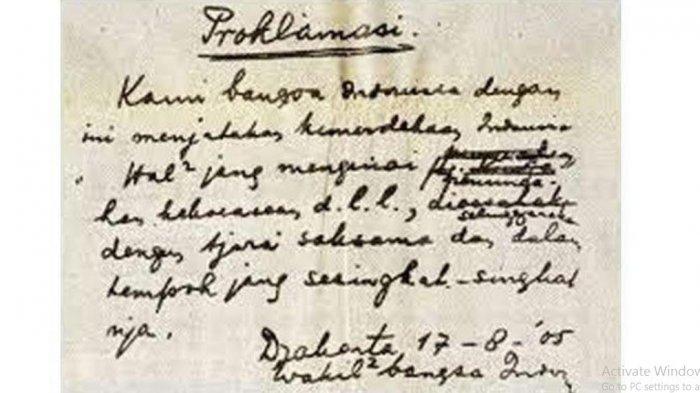 Proklamasi.
Kami bangsa Indonesia dengan
ini menjatakan kemerdekaan Indonesia
Hal² jang mengenai
peminda-
han kekoeasaan d.l.l.,
diselenggarakan
dengan tjara saksama dan dalam
tempoh jang sesingkat-singkat
nja.
Djakarta 17-8-'05
Wakil² bangsa Indon
Activate Window
Go to PC settings to a